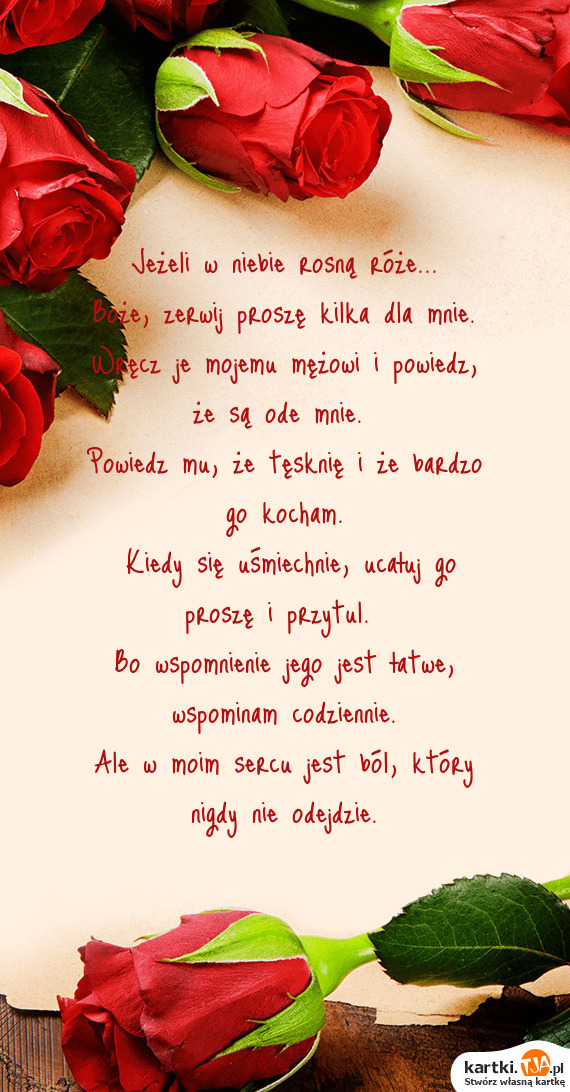 Jeżeli w niebie rosną róże...
Boże, zerwij proszę kilka dla mnie.
Wręcz je mojemu mężowi i powiedz,
że są ode mnie.
Powiedz mu, że tęsknię i że bardzo
go kocham.
Kiedy się uśmiechnie, ucałuj go
proszę i przytul.
Bo wspomnienie jego jest łatwe,
wspominam codziennie.
Ale w moim sercu jest ból, który
nigdy nie odejdzie.
kartki.TJA.pl
Stwórz własną kartkę